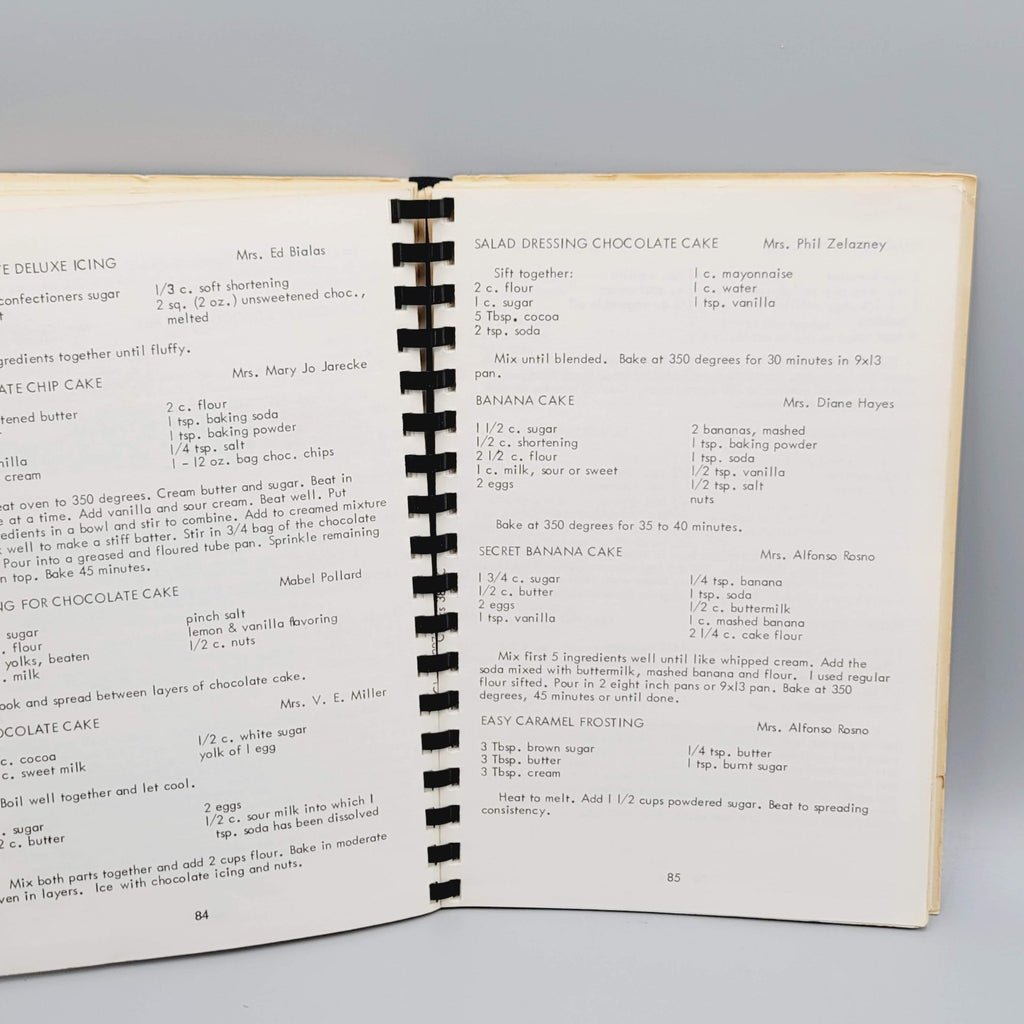 Mrs. Ed Bialas
DELUXE ICING
confectioners sugar
1/3 c. soft shortening
2 sq. (2 oz.) unsweetened choc.,
melted
together until fluffy.
Mrs. Mary Jo Jarecke
CHIP CAKE
butter
cream
2 c. flour
1 tsp. baking soda
1 tsp. baking powder
1/4 tsp. salt
1 - 12 oz. bag choc. chips
oven to 350 degrees. Cream butter and sugar. Beat in
at a time. Add vanilla and sour cream. Beat well. Put
in a bowl and stir to combine. Add to creamed mixture
well to make a stiff batter. Stir in 3/4 bag of the chocolate
Pour into a greased and floured tube pan. Sprinkle remaining
top. Bake 45 minutes.
Mabel Pollard
FOR CHOCOLATE CAKE
sugar
flour
yolks, beaten
milk
pinch salt
lemon & vanilla flavoring
1/2 c. nuts
and spread between layers of chocolate cake.
Mrs. V. E. Miller
CAKE
c. cocoa
c. sweet milk
1/2 c. white sugar
yolk of 1 egg
Boil well together and let cool.
sugar
c. butter
2 eggs
1/2 c. sour milk into which 1
tsp. soda has been dissolved
Mix both parts together and add 2 cups flour. Bake in moderate
in layers. Ice with chocolate icing and nuts.
84
SALAD DRESSING CHOCOLATE CAKE Mrs. Phil Zelazney
Sift together:
2 c. flour
1 c. sugar
5 Tbsp. cocoa
2 tsp. soda
1 c. mayonnaise
1 c. water
1 tsp. vanilla
Mix until blended. Bake at 350 degrees for 30 minutes in 9x13
pan.
BANANA CAKE Mrs. Diane Hayes
1 1/2 c. sugar
1/2 c. shortening
2 1/2 c. flour
1 c. milk, sour or sweet
2 eggs
2 bananas, mashed
1 tsp. baking powder
1 tsp. soda
1/2 tsp. vanilla
1/2 tsp. salt
nuts
Bake at 350 degrees for 35 to 40 minutes.
SECRET BANANA CAKE Mrs. Alfonso Rosno
1 3/4 c. sugar
1/2 c. butter
2 eggs
1 tsp. vanilla
1/4 tsp. banana
1 tsp. soda
1/2 c. buttermilk
1 c. mashed banana
2 1/4 c. cake flour
Mix first 5 ingredients well until like whipped cream. Add the
soda mixed with buttermilk, mashed banana and flour. I used regular
flour sifted. Pour in 2 eight inch pans or 9x13 pan. Bake at 350
degrees, 45 minutes or until done.
EASY CARAMEL FROSTING Mrs. Alfonso Rosno
3 Tbsp. brown sugar
3 Tbsp. butter
3 Tbsp. cream
1/4 tsp. butter
1 tsp. burnt sugar
Heat to melt. Add 1 1/2 cups powdered sugar. Beat to spreading
consistency.
85